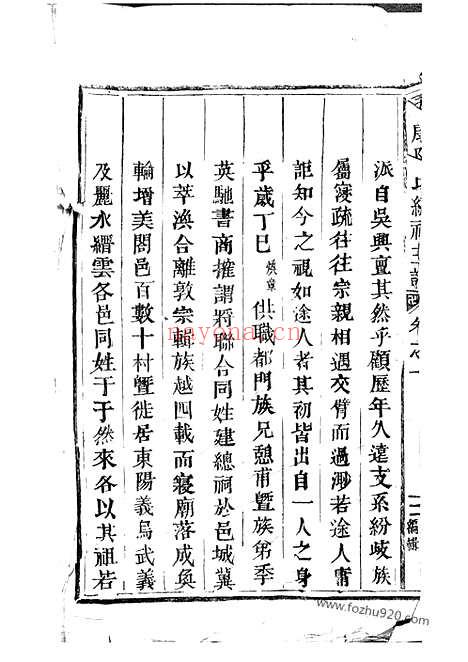 派自吳興亶其然乎顧歷年久遠支系紛歧族
屬寖疏往往宗親相遇交臂而過渺若途人庸
詎知今之視如途人者其初皆出自一人之身
乎歲丁巳煥章供職都門族兄憩甫暨族弟季
英馳書商搉謂將聯合同姓建總祠於邑城冀
以萃渙合離敦宗輯族越四載而寢廟落成奐
輪增美闔邑百數十村暨徙居東陽義烏武義
及麗水縉雲各邑同姓于于然來各以其祖若
總祠主譜 卷之一
一 編輯
nayona.cn
www.fozhu920.com